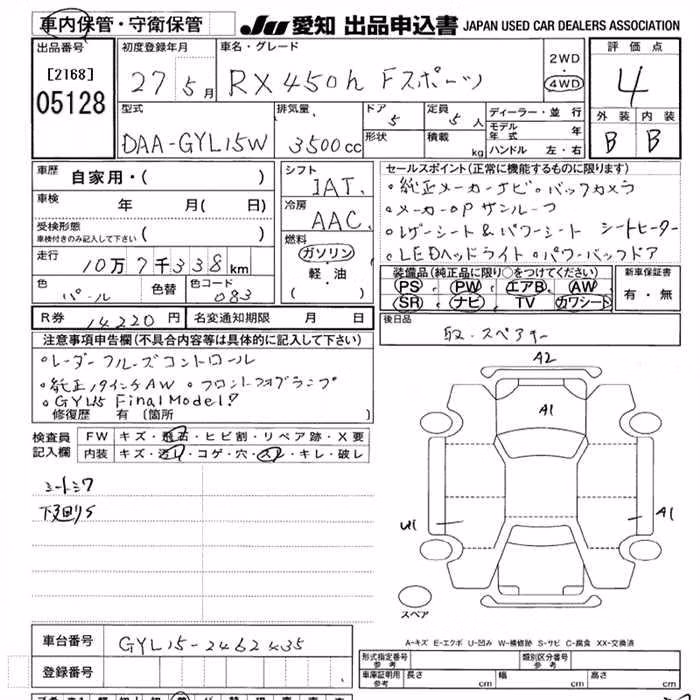 車内保管・守衛保管 JU 愛知 出品申込書 JAPAN USED CAR DEALERS ASSOCIATION
出品番号 初度登録年月 車名・グレード 評価点
[2168] 27 5月 RX450h Fスポーツ 2WD・4WD 4
05128
型式 排気量 ドア 5 定員 5人 ディーラー・並行 外装 内装
DAA-GYL15W 3500cc 形状 積載 kg モデル年式 年 B B
ハンドル 左・右
車歴 自家用・( ) シフト IAT セールスポイント(正常に機能するものに限ります)
車検 年 月( 日) 冷房 AAC ・純正メーカーナビ・バックカメラ
・メーカーOPサンルーフ
受検形態 車検付きのみ記入して下さい ( ) 燃料 ガソリン ・レザーシート&パワーシート シートヒーター
走行 10万7千338km 軽・油 ・LEDヘッドライト・パワーバックドア
( ) 装備品(純正品に限り○をつけてください) 新車保証書
色 パール 色替 色コード 083 PS PW エアB AW 有・無
SR ナビ TV カワシート
R券 14220円 名変通知期限 月 日 後日品
注意事項申告欄(不具合内容等は具体的に記入して下さい) 取・スペアキー
・レーダークルーズコントロール
・純正19インチAW ・フロントフォグランプ
・GYL15 Final Model!
修復歴 有 〔箇所 〕
検査員記入欄 FW キズ・飛石・ヒビ割・リペア跡・X要
内装 キズ・汚レ・コゲ・穴・スレ・キレ・破レ
シートシワ
下廻りS
A2
A1
U1 A1
スペア
A-キズ E-エクボ U-凹み W-補修跡 S-サビ C-腐食 XX-交換済
車台番号 GYL15-2462435
登録番号
形式指定番号 参考 類別区分番号 参考
車庫証明用 参考 長さ cm 幅 cm 高さ cm